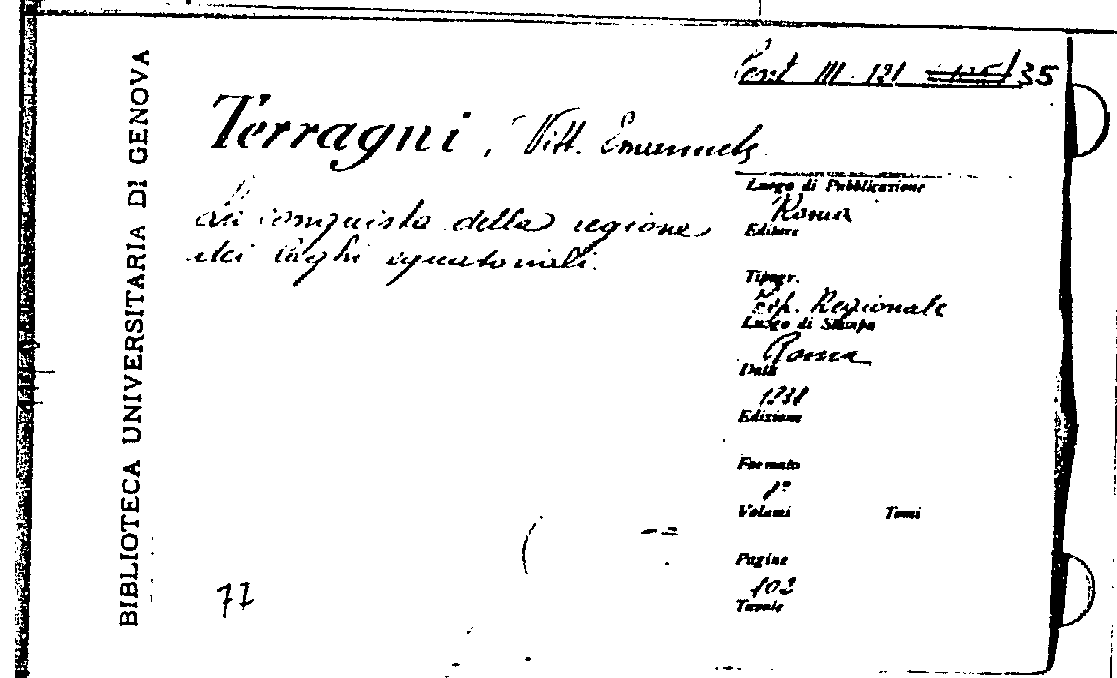 BIBLIOTECA UNIVERSITARIA DI GENOVA
III. 121 35
Terragni, Vitt. Emanuele
La conquista della regione
dei laghi equatoriali.
Luogo di Pubblicazione
Roma
Editore
Tipogr.
Tip. Regionale
Luogo di Stampa
Roma
Data
1938
Edizione
Formato
8°
Volumi Tomi
Pagine
102
Tavole
77